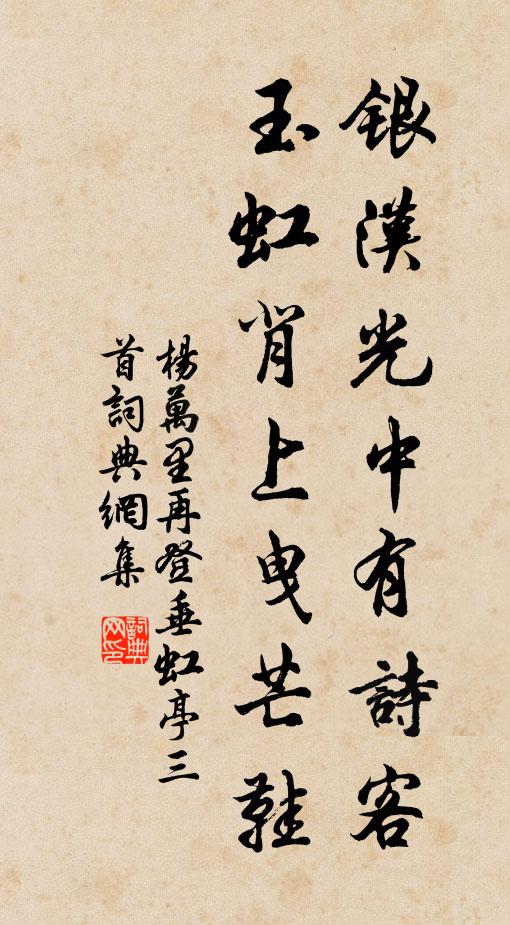 銀漢光中有詩客
玉虹背上曳芒鞋
楊萬里再登垂虹亭三
首詞典網集
詞典網印